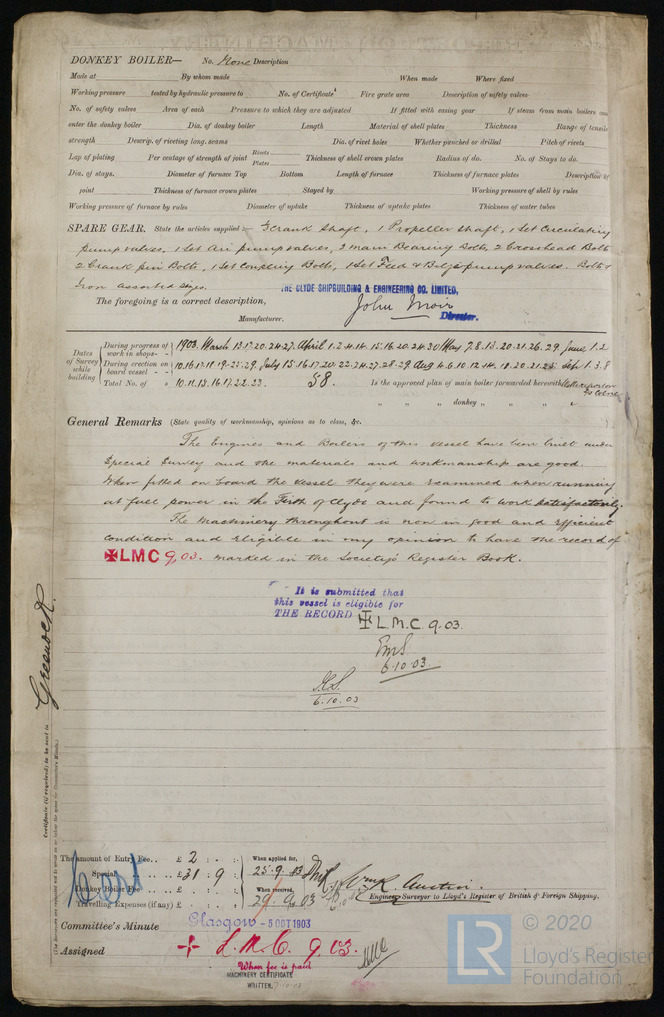 DONKEY BOILER— No. None Description
Made at By whom made When made Where fixed
Working pressure tested by hydraulic pressure to No. of Certificate Fire grate area Description of safety valves
No. of safety valves Area of each Pressure to which they are adjusted If fitted with easing gear If steam from main boilers can
enter the donkey boiler Dia. of donkey boiler Length Material of shell plates Thickness Range of tensile
strength Descrip. of riveting long. seams Dia. of rivet holes Whether punched or drilled Pitch of rivets
Lap of plating Per centage of strength of joint Rivets Plates Thickness of shell crown plates Radius of do. No. of Stays to do.
Dia. of stays. Diameter of furnace Top Bottom Length of furnace Thickness of furnace plates Description of
joint Thickness of furnace crown plates Stayed by Working pressure of shell by rules
Working pressure of furnace by rules Diameter of uptake Thickness of uptake plates Thickness of water tubes
SPARE GEAR. State the articles supplied:— Crank Shaft, 1 Propeller Shaft, 1 Set Circulating
pump valves, 1 Set Air pump valves, 2 Main Bearing Bolts, 2 Crosshead Bolts
2 Crank pin Bolts, 1 Set Coupling Bolts, 1 Set Feed & Bilge pump valves. Bolts &
Iron assorted sizes.
The foregoing is a correct description,
THE CLYDE SHIPBUILDING & ENGINEERING CO. LIMITED,
John Moir
Manufacturer. Director.
Dates of Survey while building
During progress of work in shops - - 1903. March 13.17.20.24.27. April 1.2.4.14.15.16.20.24.30 May 7.8.13.20.21.26.29. June 1.2
During erection on board vessel - - 10.16.17.18.19.25.29. July 15.16.17.20.22.24.27.28.29. Aug 4.6.10.12.14.18.20.21.25 Sep 1.3.8
Total No. of 10.11.15.16.17.22.23. 58. Is the approved plan of main boiler forwarded herewith
" " " donkey " " " "
General Remarks (State quality of workmanship, opinions as to class, &c.
The Engines and Boilers of this vessel have been built under
Special Survey and the materials and workmanship are good.
When fitted on board the vessel they were examined when running
at full power in the Firth of Clyde and found to work satisfactorily.
The Machinery throughout is now in good and efficient
condition and eligible in my opinion to have the record of
✠LMC 9.03. marked in the Society's Register Book.
It is submitted that
this vessel is eligible for
THE RECORD ✠ L.M.C. 9.03.
6.10.03
6.10.03
Greenock.
Certificate (if required) to be sent to
The amount of Entry Fee.. £ 2 : . :
When applied for,
Special £31 . 9 :
25.9.03
Donkey Boiler Fee £ : :
When received,
Travelling Expenses (if any) £ : :
29.9.03
Cert
Wm R. Austin.
Engineer Surveyor to Lloyd's Register of British & Foreign Shipping.
Committee's Minute Glasgow - 5 OCT 1903
Assigned + L.M.C. 9.03.
When fee is paid
MACHINERY CERTIFICATE
WRITTEN. 7.10.03
LR
© 2020
Lloyd's Register
Foundation